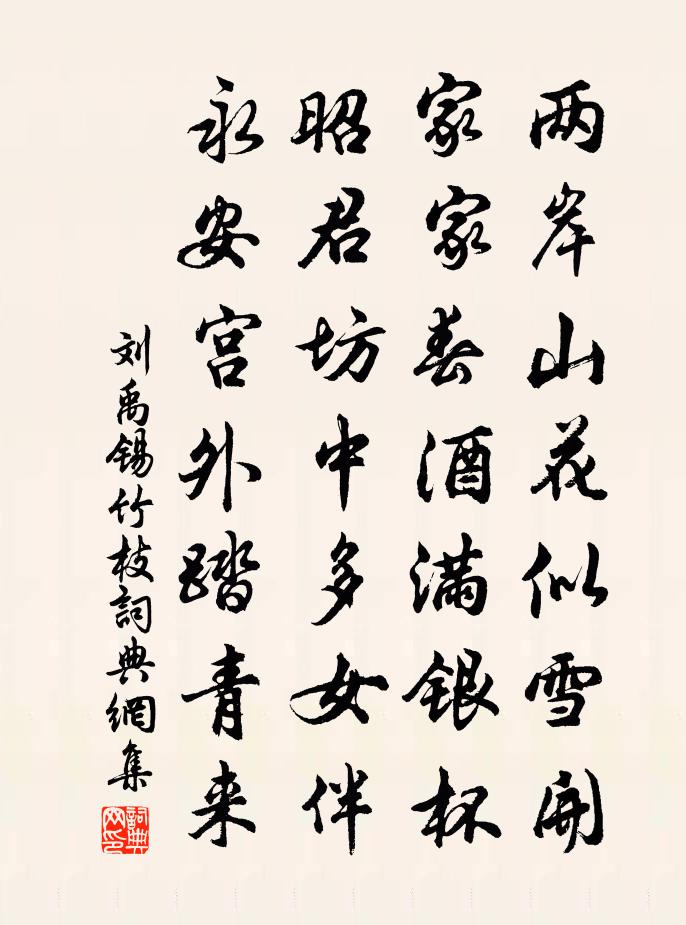 两岸山花似雪開
家家春酒满銀杯
昭君坊中多女伴
永安宫外踏青来
刘禹锡竹枝詞典網集
詞典網印